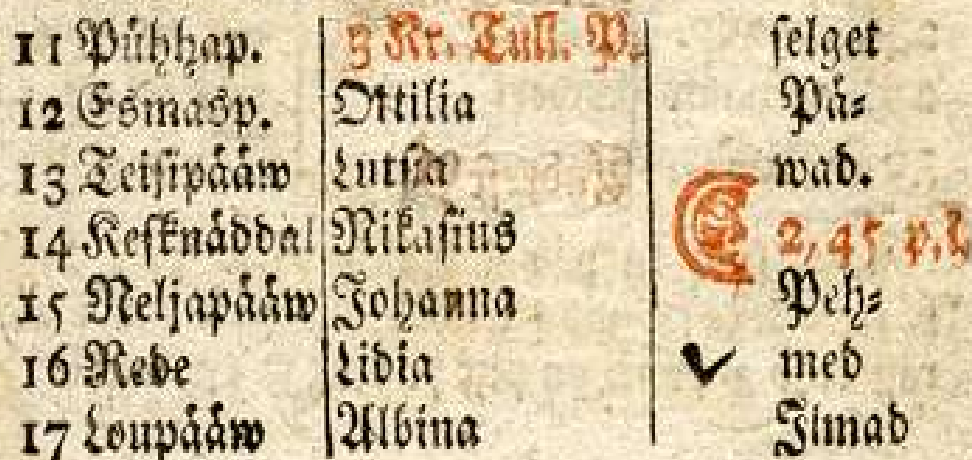 11 Pühhap. 3 Kr. Tull. P. selget
12 Esmasp. Ottilia Pä⸗
13 Teisipääw Lutsia wad.
14 Kesknäddal Nikasius 2, 45. p. L
15 Neljapääw Johanna Peh⸗
16 Rede Lidia med
17 Loupääw Albina Ilmad